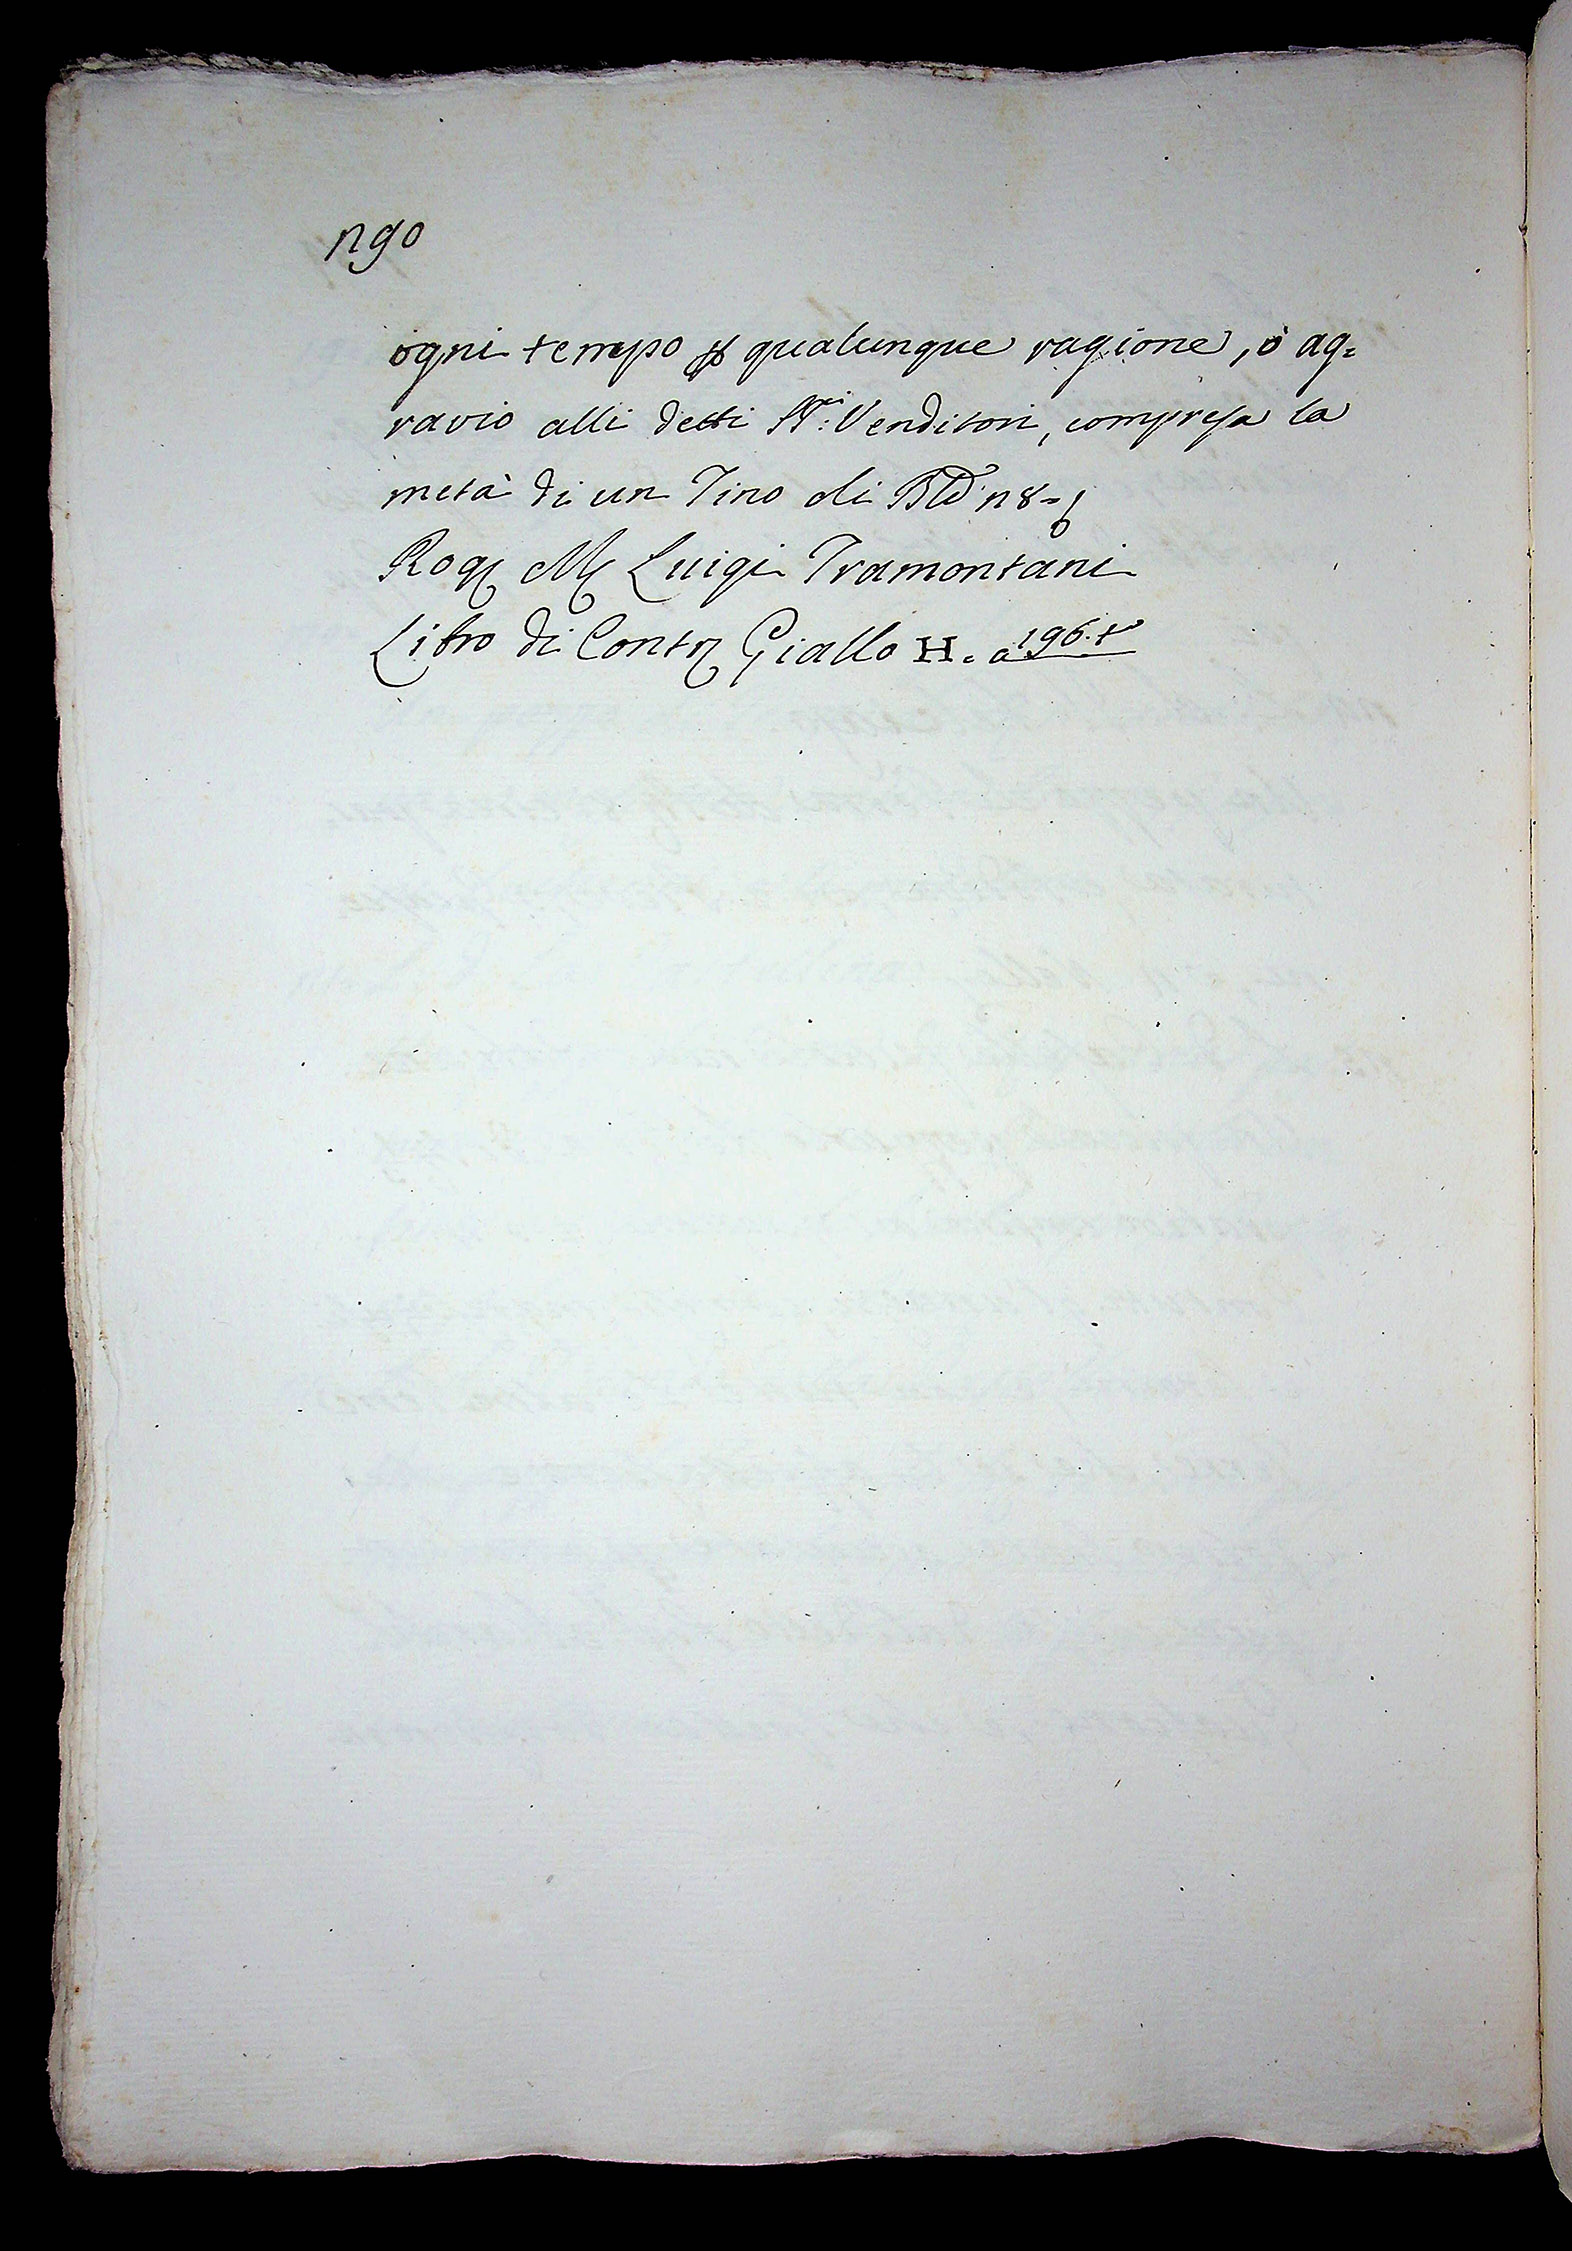 190
ogni tempo ꝑ qualunque ragione, ò ag=
ravio alli detti SS:ri Venditori, compresa la
metà di un Tino di n 8=
Rog M Luigi Tramontani
Libro di Contr Giallo H. a 196. to